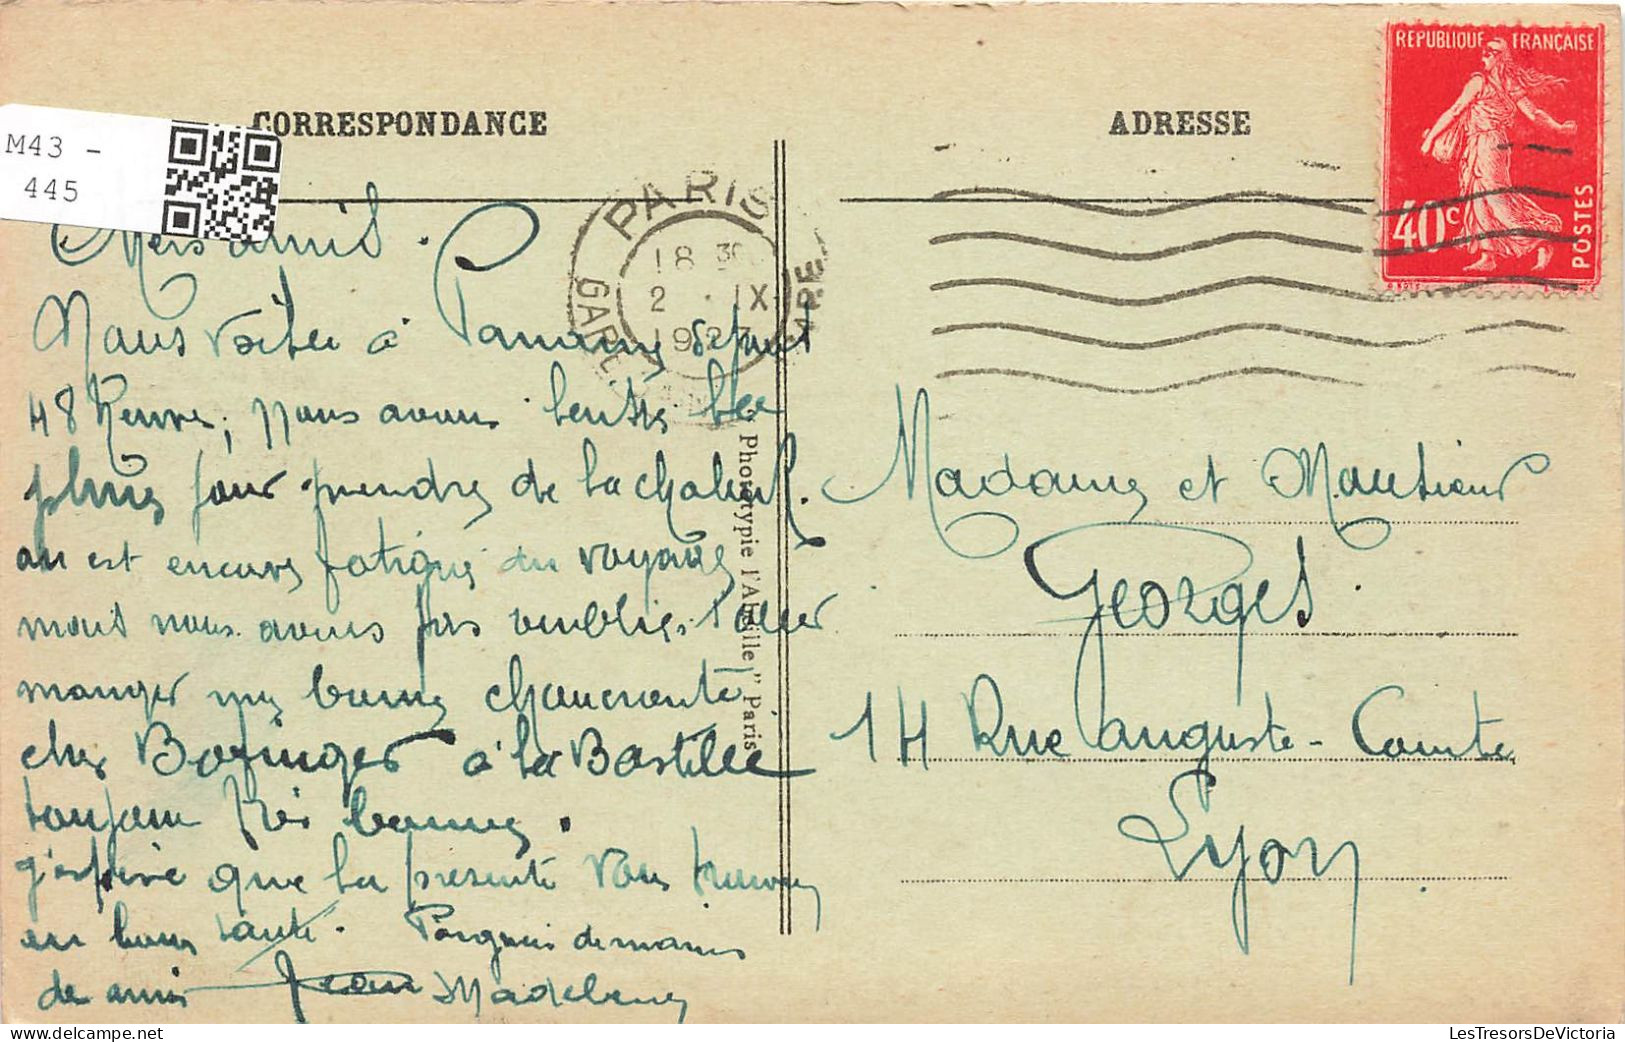 CORRESPONDANCE
ADRESSE
M43 -
445
REPUBLIQUE FRANÇAISE
40c
POSTES
PARIS
18 30
2 · IX
GARE
Mes amis.
Nous voilà à depuis
48 heures; nous avons
plus pour prendre de la chaleur.
on est encore fatigué du voyage
mais nous avons pas oublié d'aller
manger une bonne choucroute
chez Bofinger à la Bastille
toujours très bonne.
J'espère que la présente vous trouve
en bonne santé. Poignées de mains
de amis Jean Madeleine
Madame et Monsieur
Georges
14 Rue auguste-Comte
Lyon
" Phototypie l'Abeille " Paris
LesTresorsDeVictoria